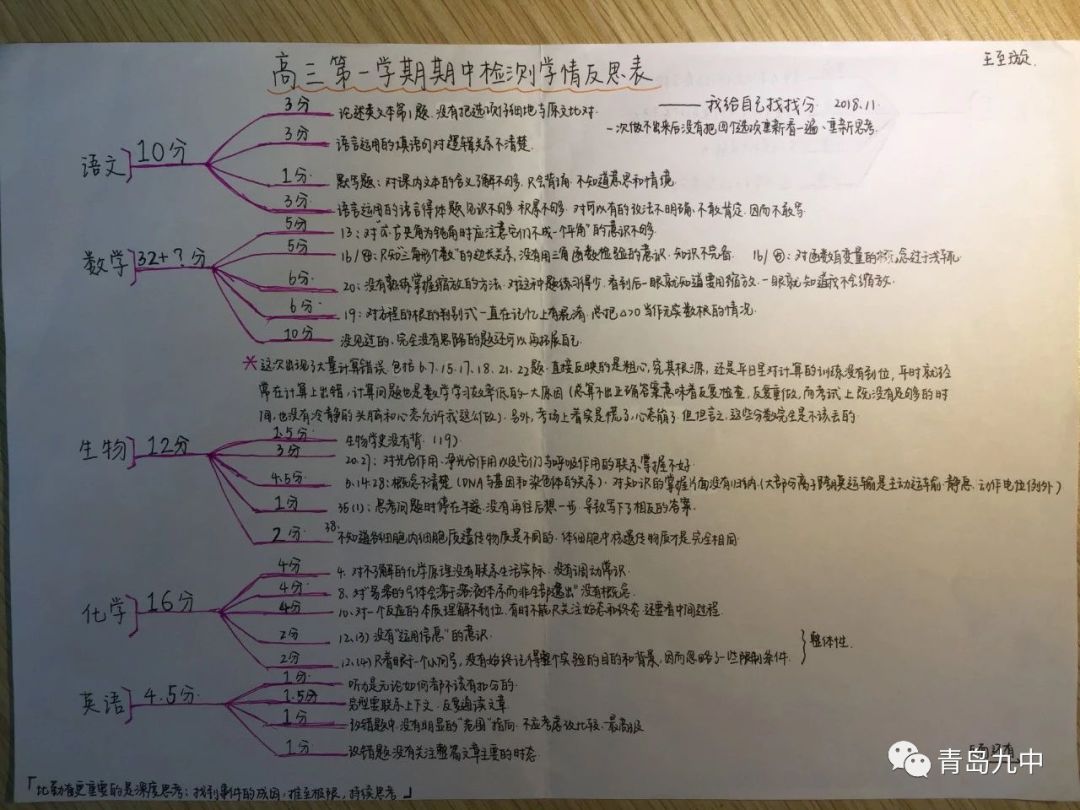 高三第一学期期中检测学情反思表
王至璇.
——我给自己找找分. 2018.11.
语文 10分
3分 论述类文本第1题. 没有把选项仔细地与原文比对.
一次做不出来后没有把四个选项重新看一遍、重新思考.
3分 语言运用的填语句对逻辑关系不清楚.
1分 默写题: 对课内文本的含义了解不够. 只会背诵. 不知道意思和情境.
3分 语言运用的语言得体题. 见识不够. 积累不够. 对可以有的说法不明确、不敢肯定. 因而不敢写.
数学 32+?分
5分 13: 对"夹角为钝角时应注意它们不成一个平角"的意识不够.
5分 16/④: 只知三角形个数的边长关系. 没有用三角函数检验的意识. 知识不完备. 16/④: 对函数自变量的概念过于浅薄.
6分 20: 没有熟练掌握缩放的方法. 对这种题练习得少. 看到后一眼就知道要用缩放. 一眼就知道我不会缩放.
6分 19: 对方程的根的判别式一直在记忆上有混淆. 总把△>0当作无实数根的情况.
10分 没见过的、完全没有思路的题还可以再拓展自己.
*这次出现了大量计算错误. 包括6.7.15.17.18.21.22题. 直接反映的是粗心, 究其根源, 还是平日里对计算的训练没有到位, 平时就经
常在计算上出错, 计算问题也是数学学习效率低的一大原因(总算不出正确答案意味着反复检查, 反复重做, 而考试上既没有足够的时
间, 也没有冷静的头脑和心态允许我这么做). 另外, 考场上着实是慌了, 心态崩了. 但坦言之, 这些分数完全是不该丢的.
生物 12分
1.5分 生物学史没有背. (19)
3分 20.27: 对光合作用、净光合作用以及它们与呼吸作用的联系掌握不好.
4.5分 6.14.28: 概念不清楚(DNA与基因和染色体的关系). 对知识的掌握片面没有归纳.(大部分离子跨膜运输是主动运输. 静息、动作电位例外)
1分 35(1): 思考问题时停在半途. 没有再往后想一步. 导致写下了相反的答案.
2分 38. 不知道各细胞内细胞质遗传物质是不同的. 体细胞中核遗传物质才是完全相同.
化学 16分
4分 4. 对不了解的化学原理没有联系生活实际. 没有调动常识.
4分 8. 对"易溶的气体会溶于溶液体系而非全部逸出"没有概念.
4分 10. 对一个反应的本质理解不到位. 有时不能只关注始态和终态. 还要看中间过程.
2分 12.(3) 没有"运用信息"的意识.
2分 12.(4) 只着眼于一个小问号, 没有始终记得整个实验的目的和背景, 因而忽略了一些限制条件. } 整体性.
英语 4.5分
1分 听力是无论如何都不该有扣分的.
1.5分 完型要联系上下文. 反复通读文章
1分 改错题中. 没有明显的"范围"指向. 不应考虑改比较、最高级
1分 改错题. 没有关注整篇文章主要的时态.
「比勤奋更重要的是深度思考: 找到事件的成因, 推至极限, 持续思考.」
青岛九中